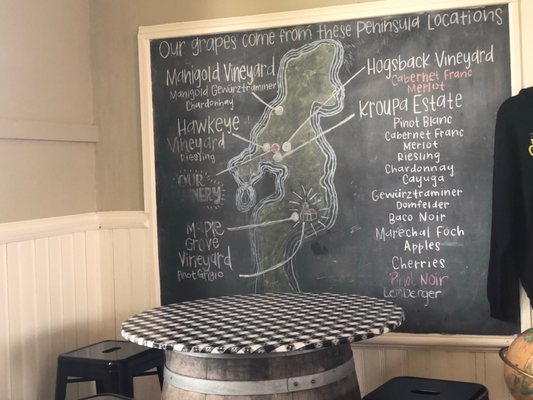 Our grapes come from these Peninsula Locations
Manigold Vineyard
Manigold Gewürztraminer
Chardonnay
Hawkeye
Vineyard
Riesling
OUR
WINERY
Maple
Grove
Vineyard
Pinot Grigio
Hogsback Vineyard
Cabernet Franc
Merlot
Kroupa Estate
Pinot Blanc
Cabernet Franc
Merlot
Riesling
Chardonnay
Cayuga
Gewürztraminer
Dornfelder
Baco Noir
Maréchal Foch
Apples
Cherries
Pinot Noir
Lemberger